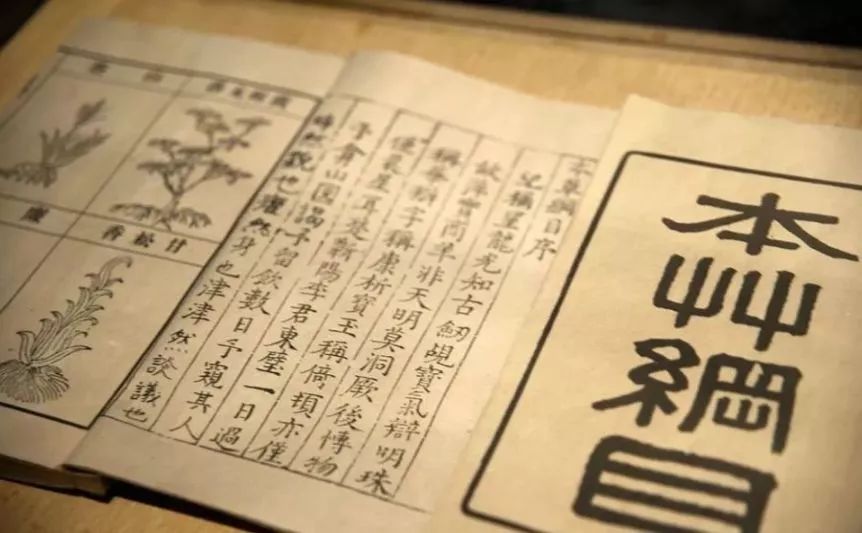 本艸綱目
本草綱目序
稱望龍光知古劒覘寶氣辯明珠
故萍實商羊非天明莫洞厥後博物
稱華辯字稱康析寶玉稱倚頓亦僅
僅晨星耳楚蘄陽李君東璧一日過
予弇山園謁予留飲數日予窺其人
然貌也癯然身也津津然談議也
甘松香